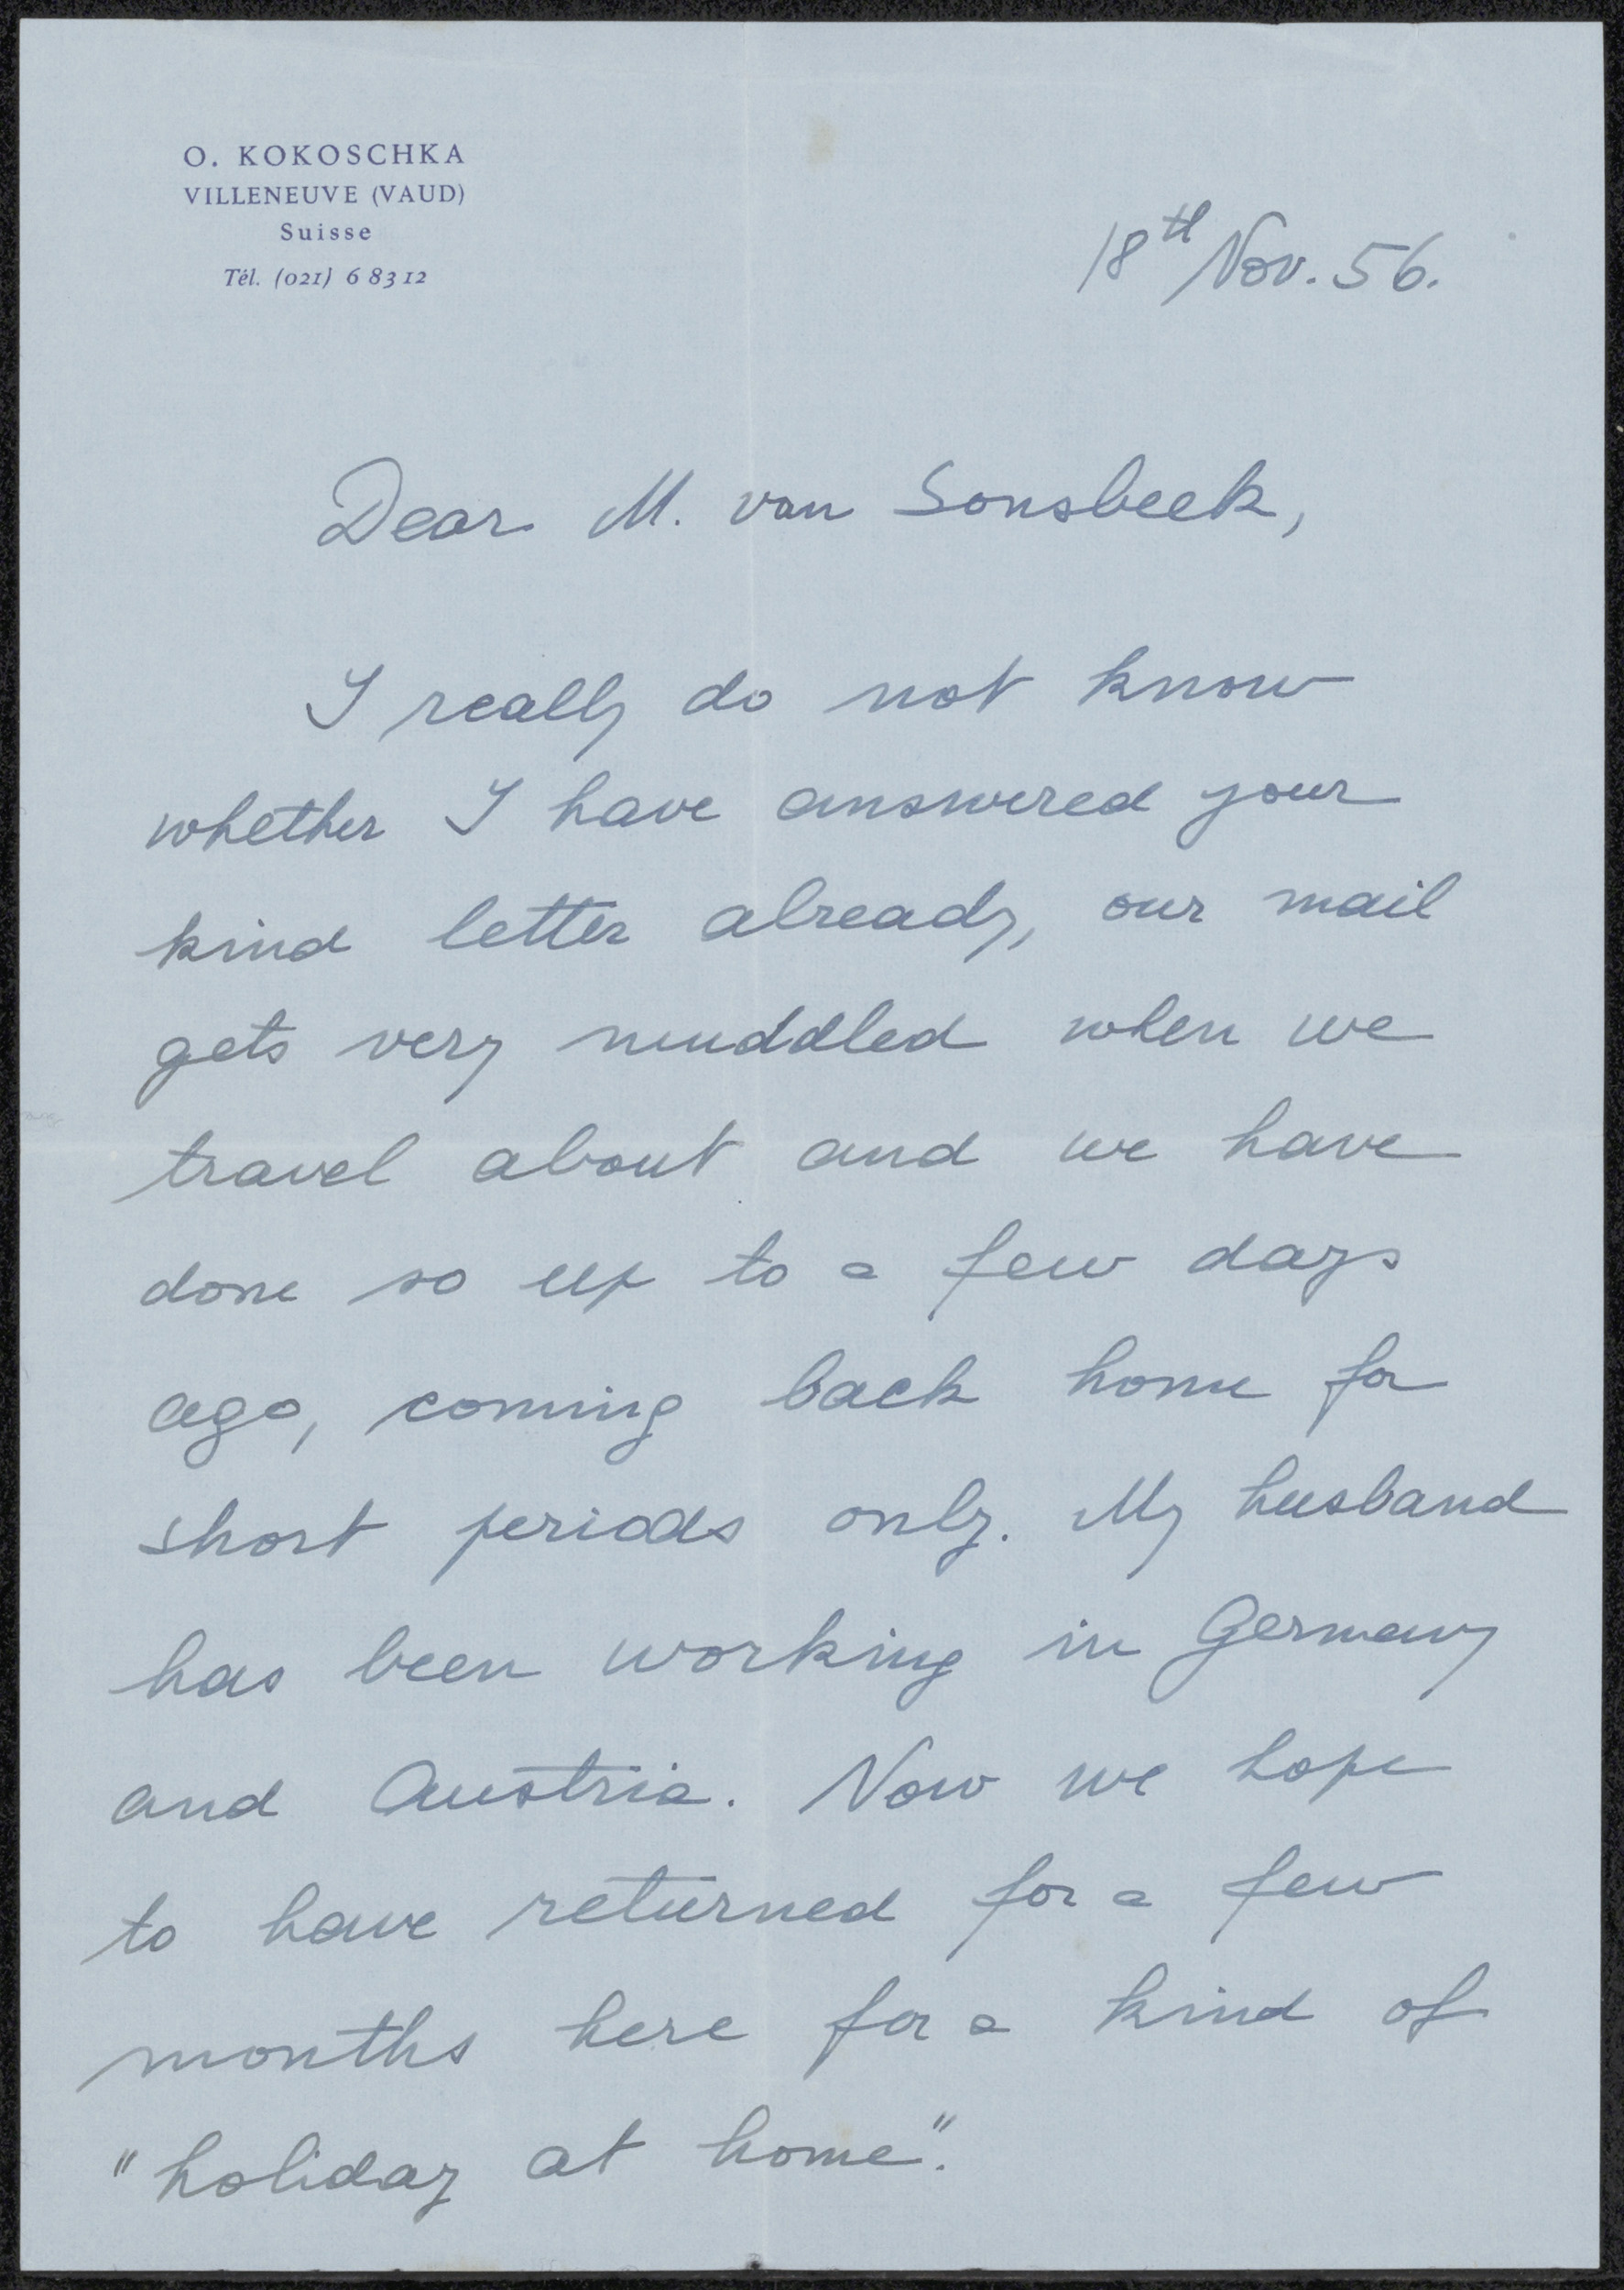 O. KOKOSCHKA
VILLENEUVE (VAUD)
Suisse
Tél. (021) 6 83 12
18th Nov. 56.
Dear M. van Sonsbeek,
I really do not know
whether I have answered your
kind letter already, our mail
gets very muddled when we
travel about and we have
done so up to a few days
ago, coming back home for
short periods only. My husband
has been working in Germany
and Austria. Now we hope
to have returned for a few
months here for a kind of
"holiday at home".